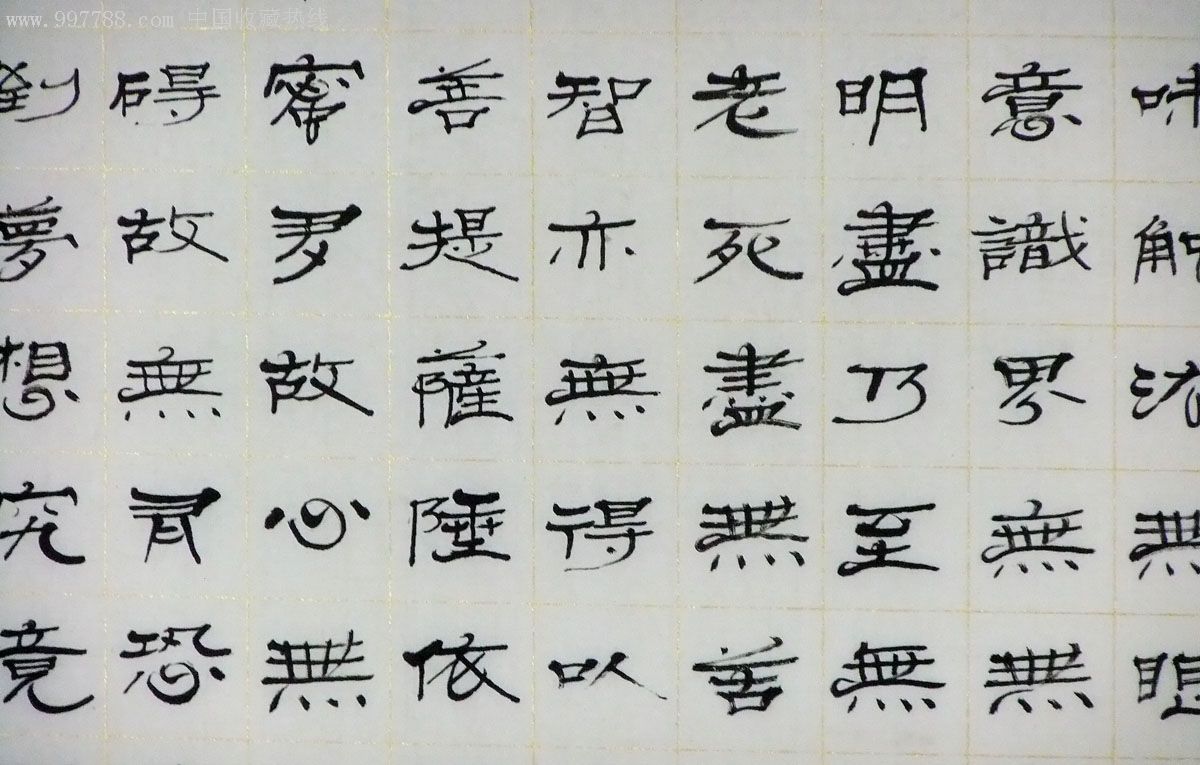 www.997788.com 中国收藏热线
味觸法無眼
意識界無無
明盡乃至無
老死盡無苦
智亦無得以
菩提薩埵依
密多故心無
碍故無有恐
倒夢想究竟